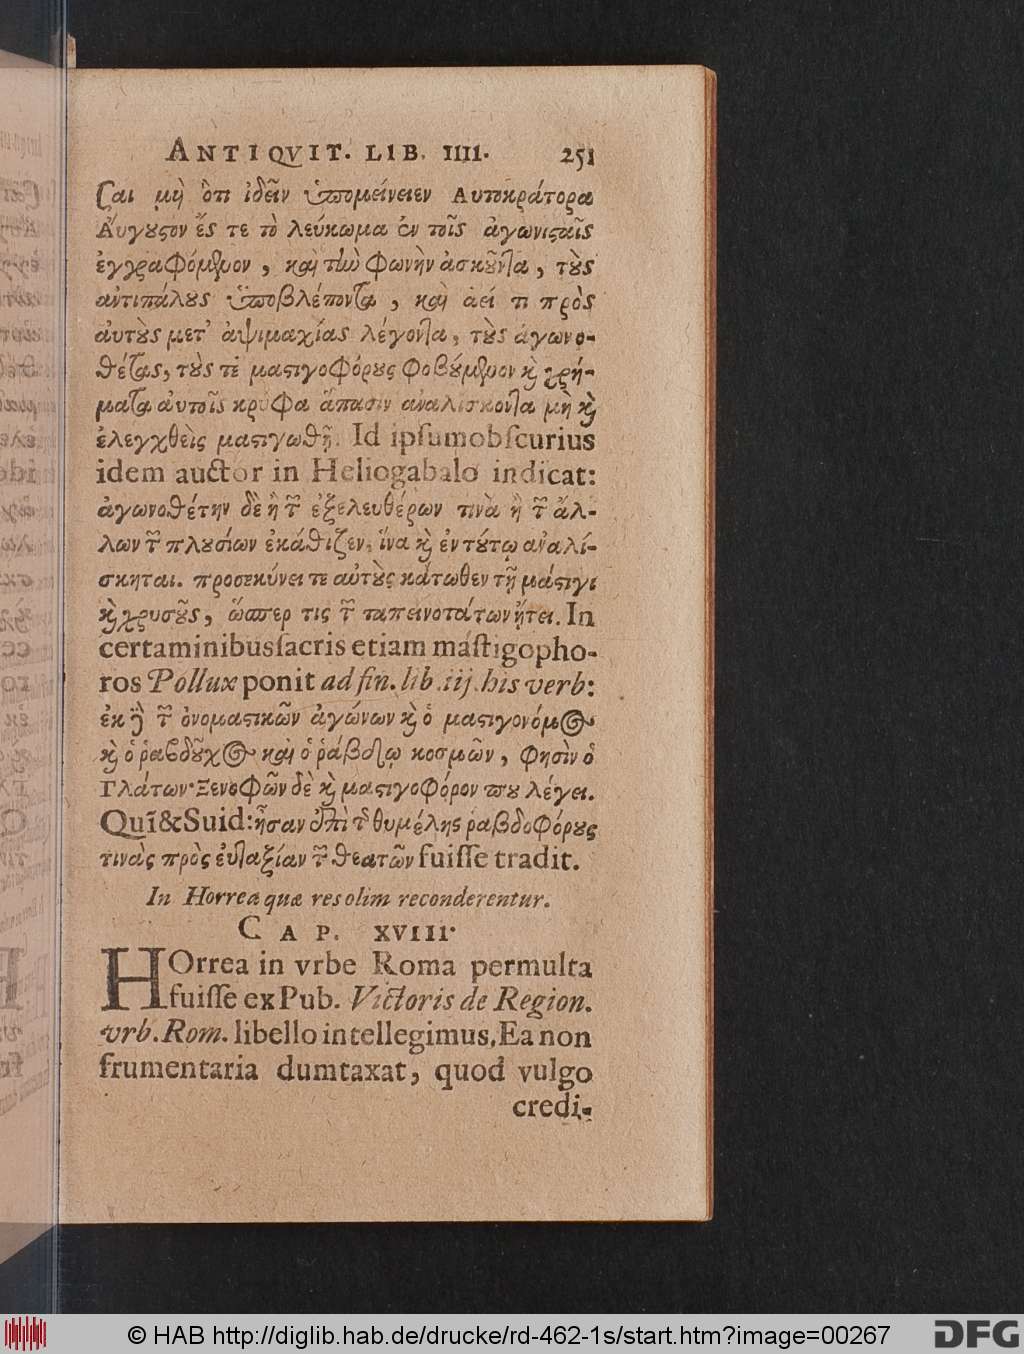 ANTIQVIT. LIB. IIII. 251
ϛαι μὴ ὅτι ἰδεῖν ὑπομείνειεν Αυτοκράτορα
Αὔγουϛον ἔς τε τὸ λεύκωμα ἐν τοῖς ἀγωνιϛαῖς
ἐγγραφόμενον, καὶ τὴν φωνὴν ἀσκοῦντα, τοὺς
αὐτιπάλους ὑποβλέποντα, καὶ αεί τι πρὸς
αὐτοὺς μετ' ἁψιμαχίας λέγοντα, τοὺς ἀγωνο-
θέτας, τοὺς τε μαϛιγοφόρους φοβούμενον κὶ χρή-
ματα αὐτοῖς κρυφα ἅπασιν αναλισκοντα μὴ κὶ
ἐλεγχθεὶς μαϛιγωθῇ. Id ipſumobſcurius
idem auctor in Heliogabalo indicat:
ἀγωνοθέτην δὲ ἢ τῶν ἐξελευθέρων τινὰ ἢ τῶν ἄλ-
λων τῶν πλουσίων ἐκάθιζεν, ἵνα κὶ ἐν τούτῳ αναλί-
σκηται. προσεκύνει τε αὐτοὺς κάτωθεν τῇ μάϛιγι
κὶ χρυσοῦς, ὥσπερ τις τῶν ταπεινοτάτων ᾔτει. In
certaminibusſacris etiam maſtigopho-
ros Pollux ponit ad fin. lib. iij. his verb:
ἐκ δὲ τῶν ὀνομαϛικῶν ἀγώνων κὶ ὁ μαϛιγονόμος
κὶ ὁ ῥαβδοῦχος καὶ ὁ ῥάβδῳ κοσμῶν, φησὶν ὁ
Πλάτων· Ξενοφῶν δὲ κὶ μαϛιγοφόρον που λέγει.
Quī & Suid: ἦσαν ἐπὶ τῆς θυμέλης ραβδοφόρους
τινὰς πρὸς εὐταξίαν τῶν θεατῶν fuiſſe tradit.
In Horrea quæ res olim reconderentur.
CAP. XVIII.
HOrrea in vrbe Roma permulta
fuiſſe ex Pub. Victoris de Region.
vrb. Rom. libello intellegimus. Ea non
frumentaria dumtaxat, quod vulgo
credi-
© HAB http://diglib.hab.de/drucke/rd-462-1s/start.htm?image=00267
DFG